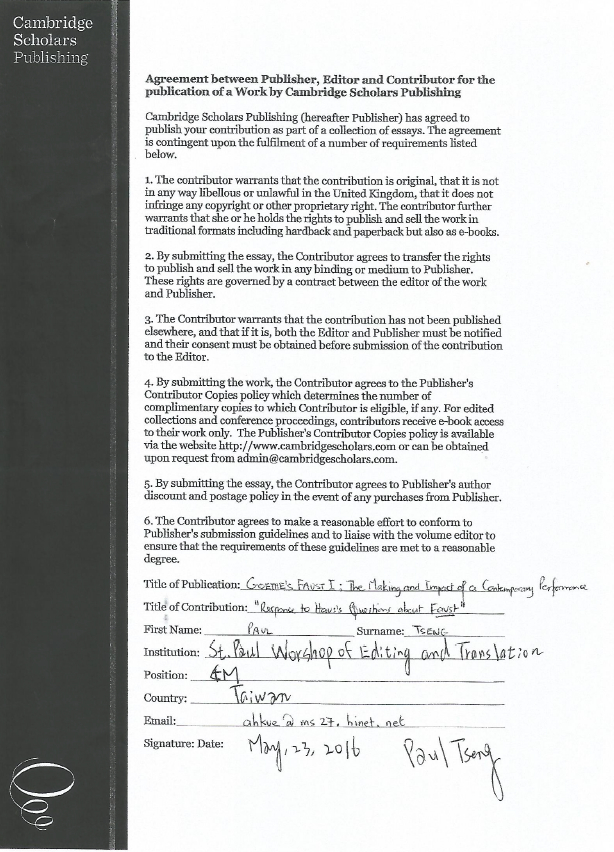 Cambridge
Scholars
Publishing
Agreement between Publisher, Editor and Contributor for the
publication of a Work by Cambridge Scholars Publishing
Cambridge Scholars Publishing (hereafter Publisher) has agreed to
publish your contribution as part of a collection of essays. The agreement
is contingent upon the fulfilment of a number of requirements listed
below.
1. The contributor warrants that the contribution is original, that it is not
in any way libellous or unlawful in the United Kingdom, that it does not
infringe any copyright or other proprietary right. The contributor further
warrants that she or he holds the rights to publish and sell the work in
traditional formats including hardback and paperback but also as e-books.
2. By submitting the essay, the Contributor agrees to transfer the rights
to publish and sell the work in any binding or medium to Publisher.
These rights are governed by a contract between the editor of the work
and Publisher.
3. The Contributor warrants that the contribution has not been published
elsewhere, and that if it is, both the Editor and Publisher must be notified
and their consent must be obtained before submission of the contribution
to the Editor.
4. By submitting the work, the Contributor agrees to the Publisher's
Contributor Copies policy which determines the number of
complimentary copies to which Contributor is eligible, if any. For edited
collections and conference proceedings, contributors receive e-book access
to their work only. The Publisher's Contributor Copies policy is available
via the website http://www.cambridgescholars.com or can be obtained
upon request from admin@cambridgescholars.com.
5. By submitting the essay, the Contributor agrees to Publisher's author
discount and postage policy in the event of any purchases from Publisher.
6. The Contributor agrees to make a reasonable effort to conform to
Publisher's submission guidelines and to liaise with the volume editor to
ensure that the requirements of these guidelines are met to a reasonable
degree.
Title of Publication: GOETHE'S FAUST I: The Making and Impact of a Contemporary Performance
Title of Contribution: "Response to Questions about Faust"
First Name: PAUL Surname: TSENG
Institution: St. Paul Worshop of Editing and Translation
Position:
Country: Taiwan
Email: ahkue@ms27.hinet.net
Signature: Date: May, 23, 2016 Paul Tseng